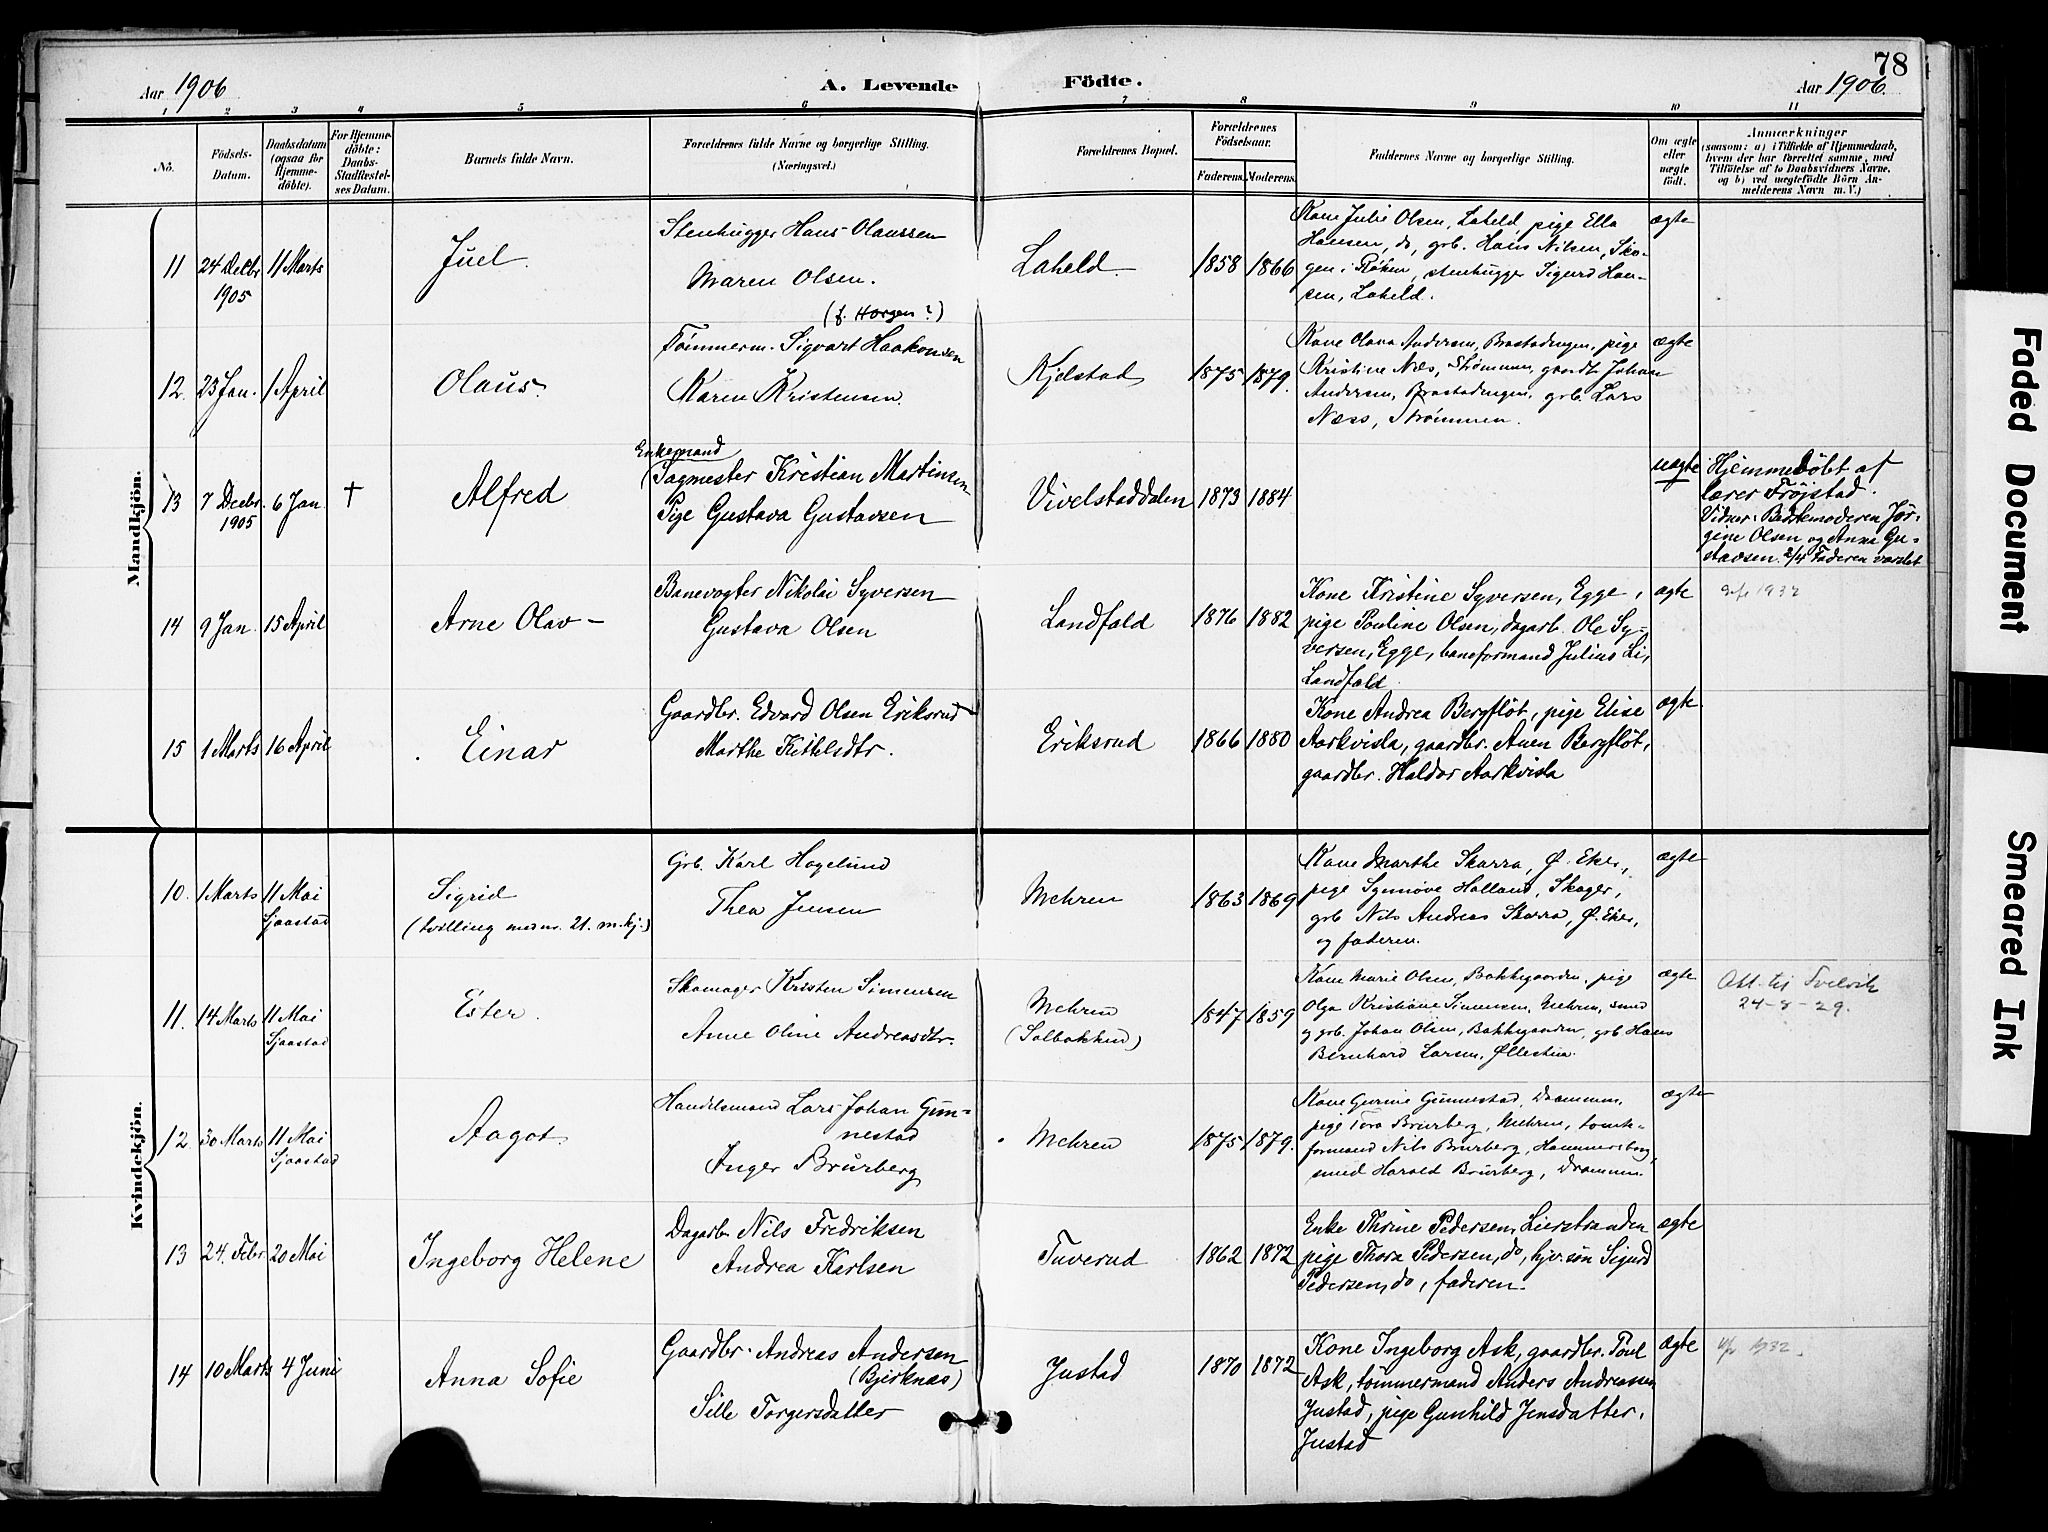 78
Aar 1906 A. Levende Födte. Aar 1906.
1 2 3 4 5 6 7 8 9 10 11
No.
Födsels-
Datum.
Daabsdatum
(ogsaa for
Hjemme-
döbte).
For Hjemme-
döbte:
Daabs-
Stadfæstel-
ses Datum.
Barnets fulde Navn.
Forældrenes fulde Navne og borgerlige Stilling.
(Næringsvei.)
Forældrenes Bopæl.
Forældrenes
Födselsaar.
Faderens. Moderens.
Faddernes Navne og borgerlige Stilling.
Om ægte
eller
uægte
födt.
Anmærkninger
(saasom: a) i Tilfælde af Hjemmedaab,
hvem der har forrettet samme, med
Tilföielse af to Daabsvidners Navne,
og b) ved uægtefödte Börn An-
melderens Navn m. V.)
Mandkjön.
11 24 Decbr 1905 11 Marts
Juel.
Stenhugger Hans Olaussen
Maren Olsen.
(f. Horgen?)
Laheld
1858 1866
Kone Julie Olsen, Laheld, pige Ella
Hansen, do, grb. Hans Nilsen, Sko-
gen i Røken, stenhugger Sigurd Han-
sen, Laheld.
ægte
12. 23 Jan. 1 April
Olaus.
Tömmerm. Sigvart Haakonsen
Karen Kristensen.
Kjelstad
1875 1879.
Kone Olava Andersen, Brastadengen, pige
Kristine Næs, Strømmen, gaardb. Johan
Andersen, Brastadengen, grb. Lars
Næss, Strömmen.
ægte
13 7 Decbr. 1905 6 Jan. †
Alfred
Enkemand
(Sagmester Kristian Martinsen
Pige Gustava Gustavsen
Vivelstaddalen
1873 1884
uægte
Hjemmedöbt af
lærer Fröjstad.
Vidner: Bedstemoderen Jör-
gine Olsen og Anna Gu-
stavsen. 2/4 Faderen varslet
14 9 Jan. 15 April
Arne Olav –
Banevogter Nikolai Syversen
Gustava Olsen
Landfald
1876 1882
Kone Kristine Syversen, Egge,
pige Pouline Olsen, dagarb. Ole Sy-
versen, Egge, baneformand Julius Li,
Landfald.
ægte
1932
15 1 Marts 16 April
Einar
Gaardbr. Edvard Olsen Eriksrud
Marthe Kittilsdtr.
Eriksrud
1866 1880
Kone Andrea Bergflöt, pige Elise
Aarkvisla, gaardbr. Auen Bergflöt,
gaardbr. Haldor Aarkvisla
ægte
Kvindekjön.
10. 1 Marts 11 Mai Sjaastad
Sigrid
(tvilling med no. 21. m.kj.)
Grb. Karl Hagelund
Thea Jensen
Mehren
1863 1869
Kone Marthe Skarra, Ø. Eker,
pige Synnöve Holland, Skoger,
grb Nils Andreas Skarra, Ø. Eker,
og faderen.
ægte
11. 14 Marts 11 Mai Sjaastad
Ester.
Skomager Kristen Simensen
Anne Oline Andreasdtr.
Mehren
(Solbakken)
1847 1859
Kone Marie Olsen, Bakkegaarden, pige
Olga Kristiane Simensen, Mehren, smed
og grb. Johan Olsen, Bakkegaarden, grb Hans
Bernhard Larsen, Øllestua.
ægte
Att. til Svelvik
24-8-29.
12 30 Marts 11 Mai Sjaastad
Aagot
Handelsmand Lars Johan Gun-
nestad
Inger Brürberg
Mehren
1875 1879.
Kone Gurine Gunnestad, Drammen,
pige Tora Brurberg, Mehren, tomt-
formand Nils Brurberg, Hammersborg,
smed Harald Brurberg, Drammen
ægte
13 24. Febr. 20 Mai
Ingeborg Helene
Dagarb. Nils Fredriksen
Andrea Karlsen
Tuverud
1862 1872
Enke Thrine Pedersen, Lierstranden
pige Thora Pedersen, do, hjv. sön Sigurd
Pedersen, do, faderen.
ægte
14 10 Marts 4 Juni
Anna Sofie
Gaardbr. Andreas Andersen
(Bjerknæs)
Sille Torgersdatter
Justad
1870 1872
Kone Ingeborg Ask, gaardbr. Poul
Ask, tömmermand Anders Andreassen
Justad, pige Gunhild Jensdatter,
Justad
ægte
1932.
Faded Document
Smeared Ink